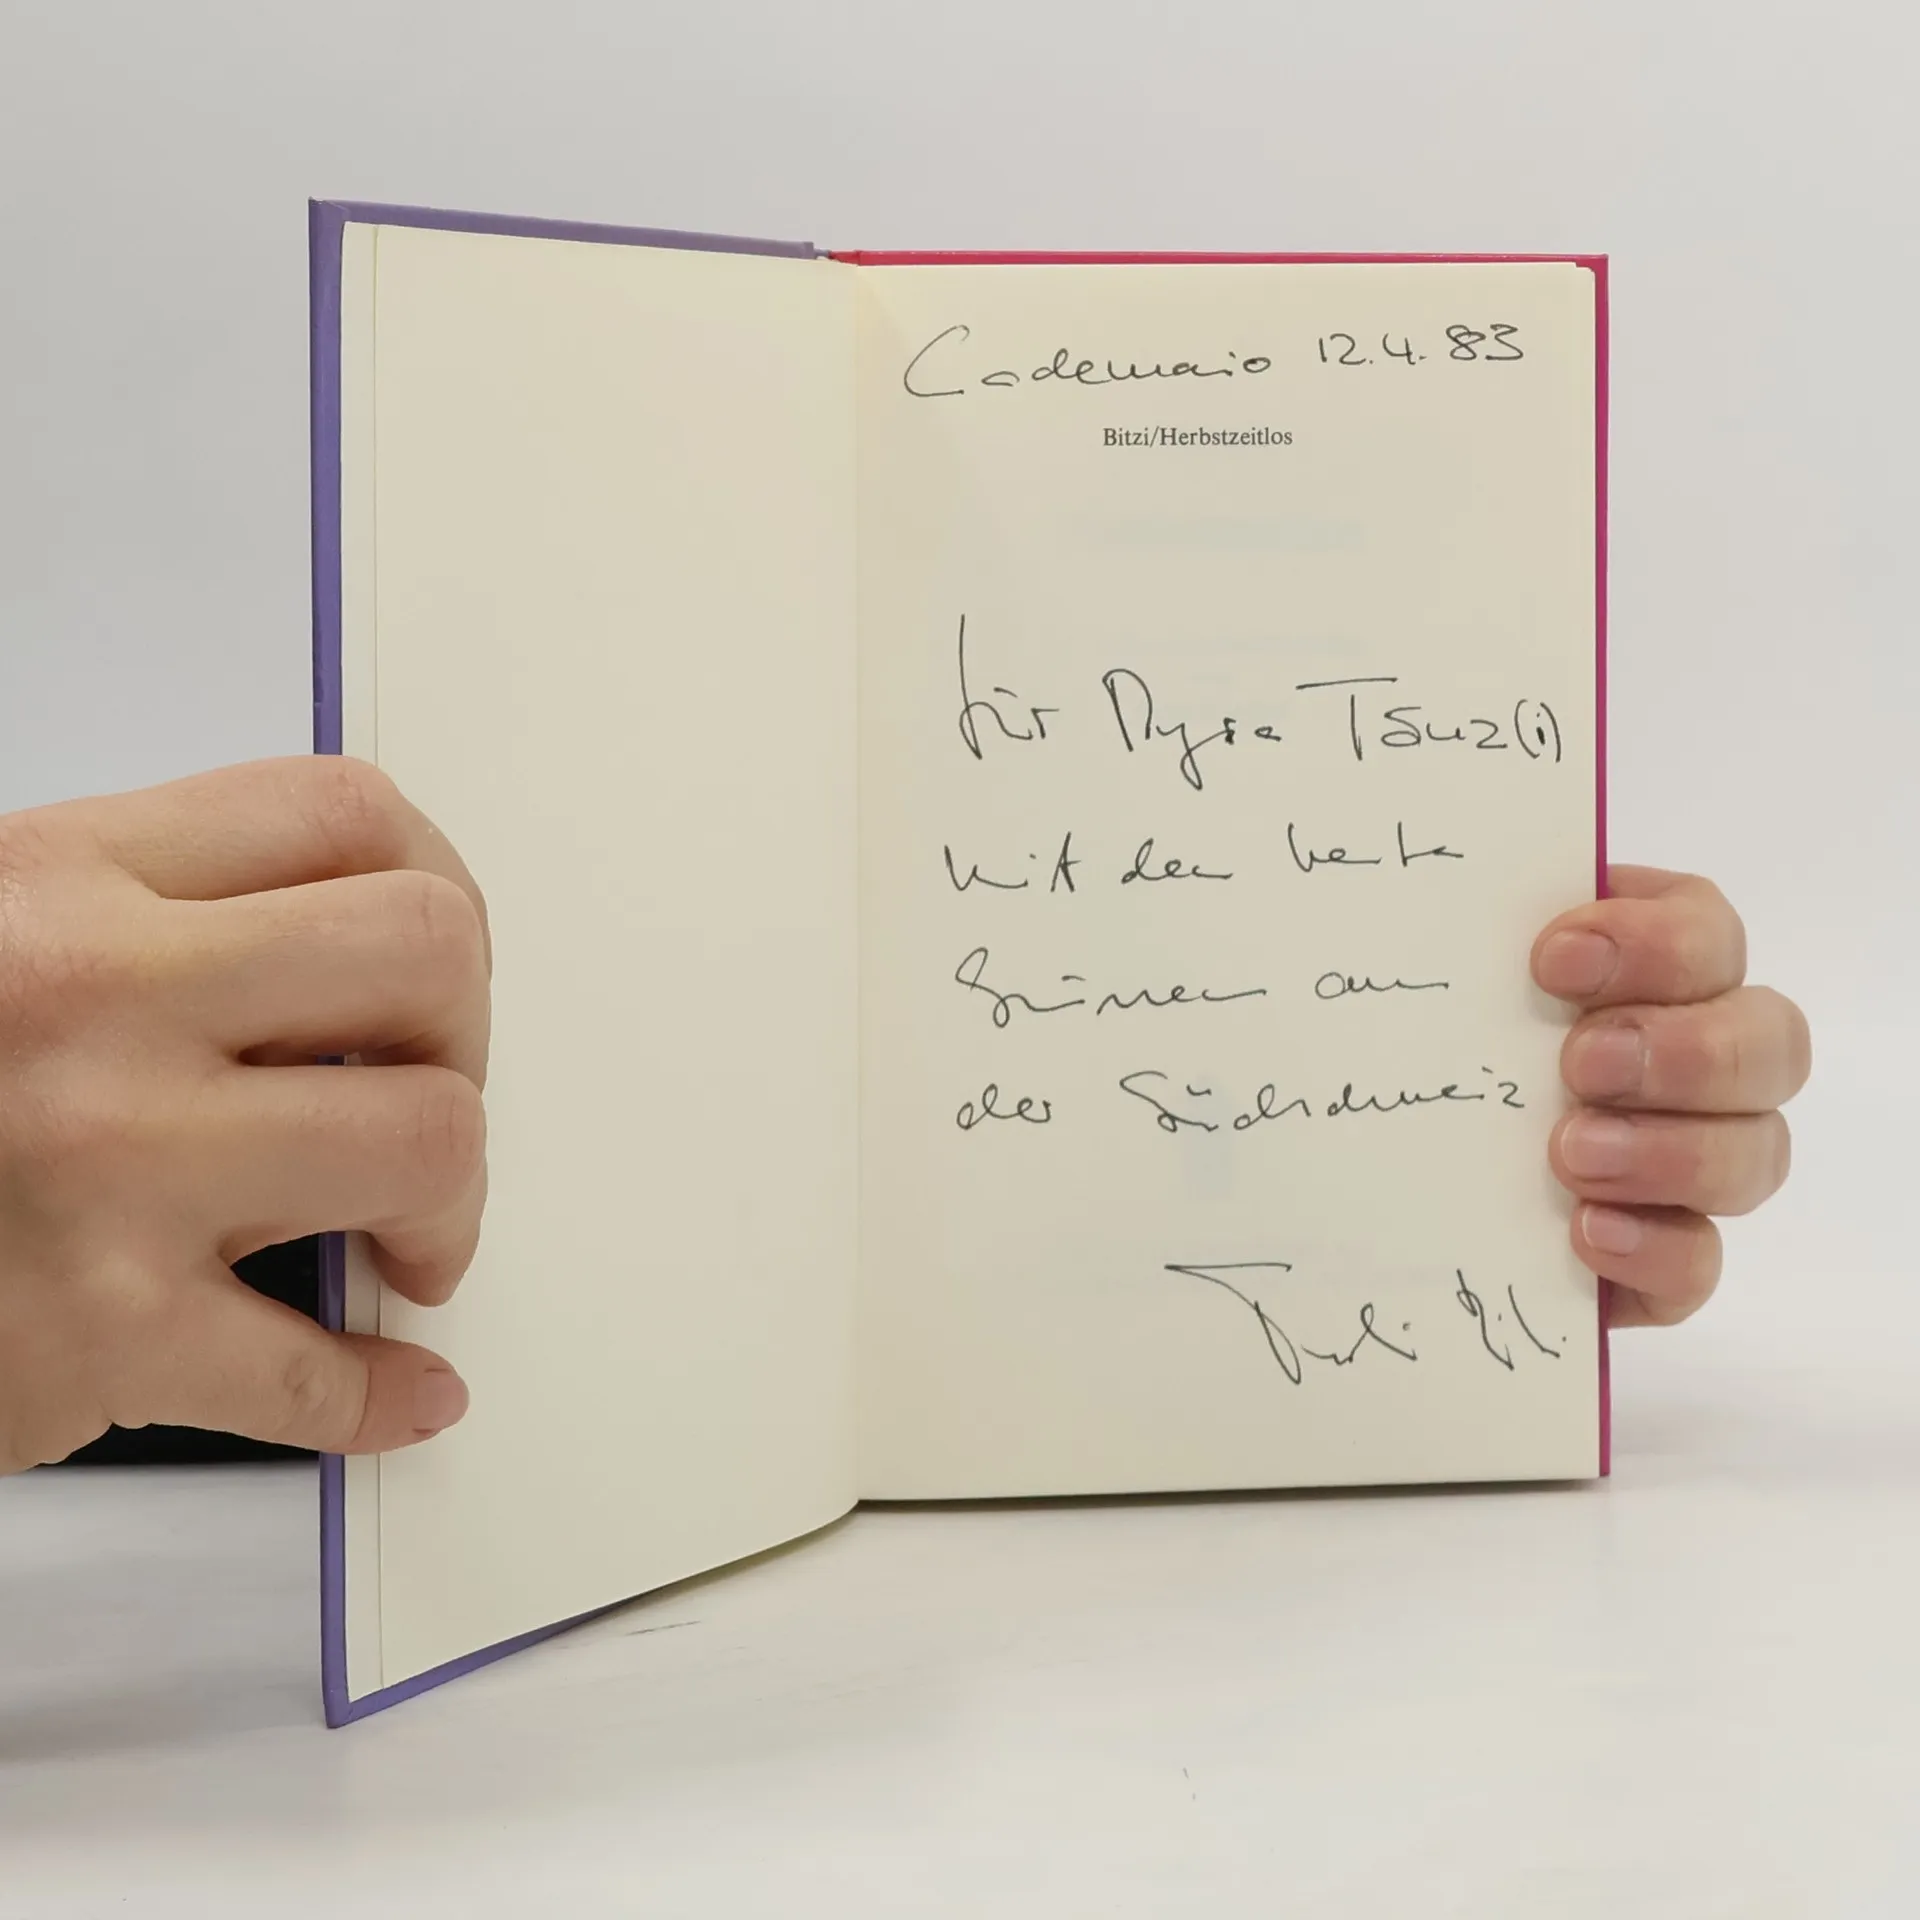 Cademario 12.4.83
Bitzi/Herbstzeitlos
für Myra Tänz(i)
mit den besten
Grüssen aus
der Südschweiz